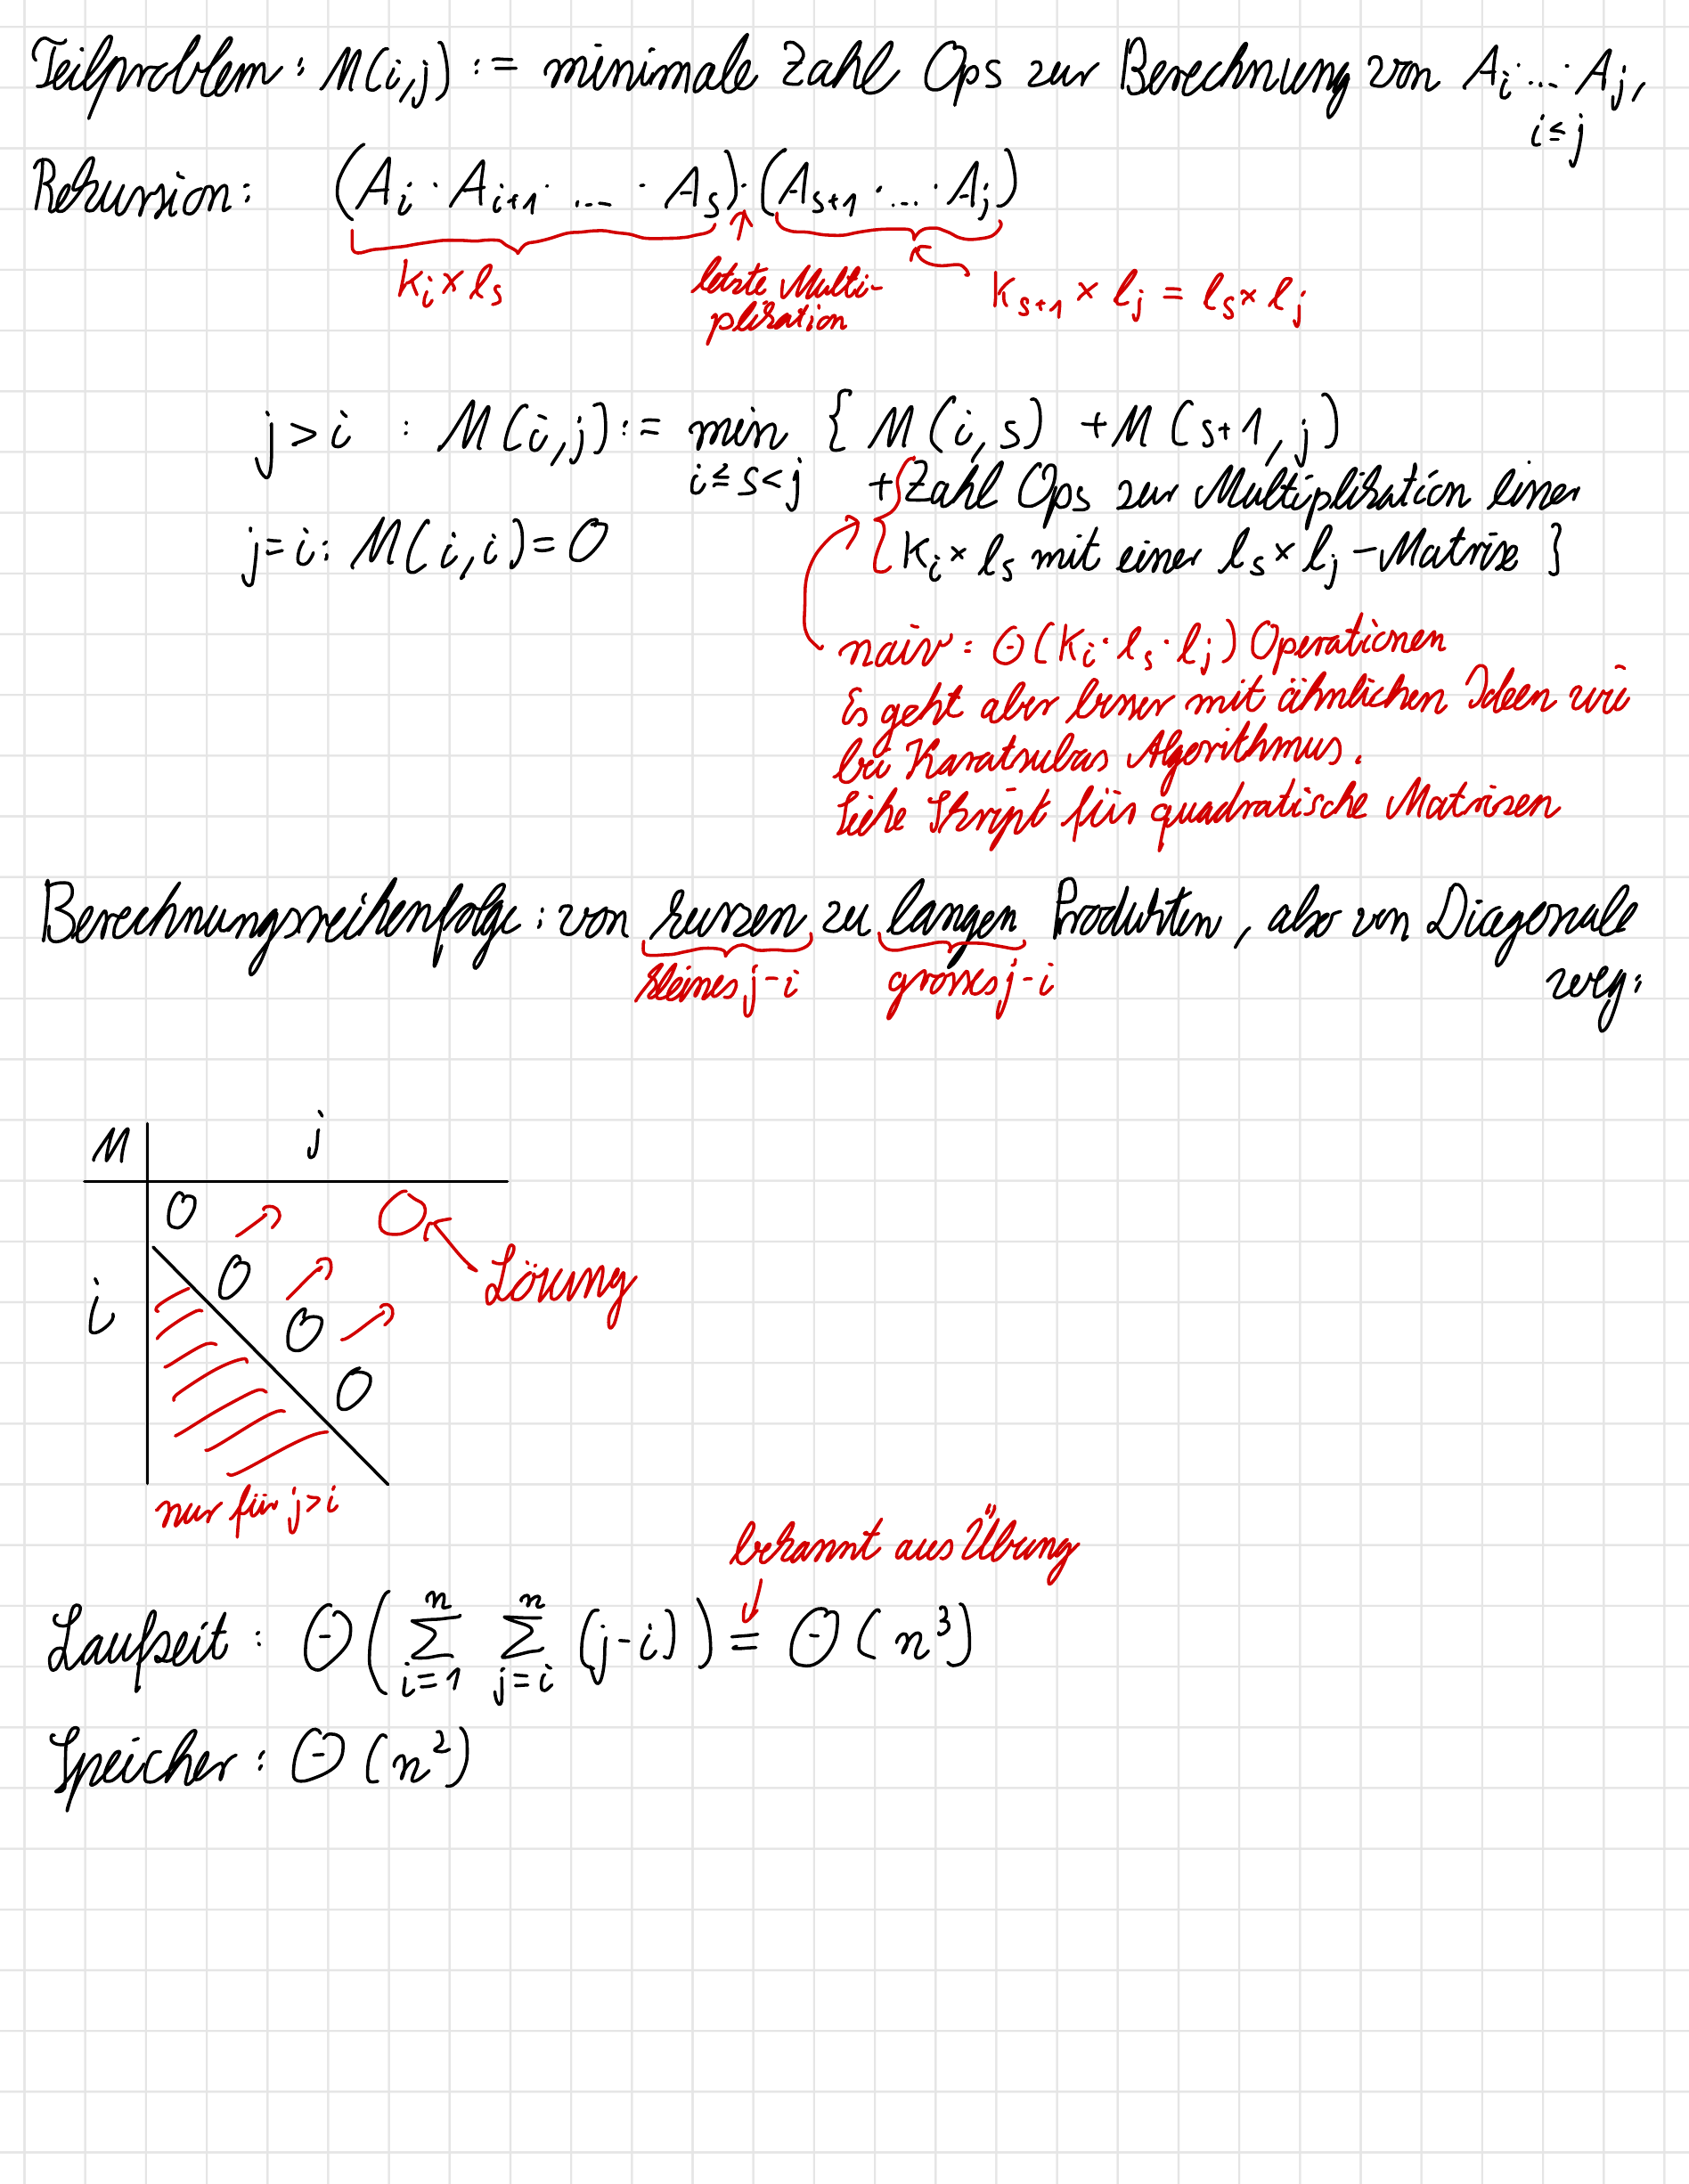 Teilproblem: M(i,j) := minimale Zahl Ops zur Berechnung von Aᵢ·...·Aⱼ,
i≤j
Rekursion: (Aᵢ · Aᵢ₊₁ · ... · Aₛ) · (Aₛ₊₁ · ... · Aⱼ)
kᵢ × lₛ
letzte Multi-
plikation
kₛ₊₁ × lⱼ = lₛ × lⱼ
j > i : M(i,j) := min { M(i,s) + M(s+1,j)
i≤s<j
+ Zahl Ops zur Multiplikation einer
j=i: M(i,i) = 0
kᵢ × lₛ mit einer lₛ × lⱼ - Matrix }
naiv: Θ(kᵢ · lₛ · lⱼ) Operationen
Es geht aber besser mit ähnlichen Ideen wie
bei Karatsubas Algorithmus.
Siehe Skript für quadratische Matrizen
Berechnungsreihenfolge: von kurzen zu langen Produkten, also von Diagonale
weg:
kleines j-i
grosses j-i
M
j
0
0
0
0
i
Lösung
nur für j>i
bekannt aus Übung
Laufzeit: Θ(∑ᵢ₌₁ⁿ ∑ⱼ₌ᵢⁿ (j-i)) = Θ(n³)
Speicher: Θ(n²)